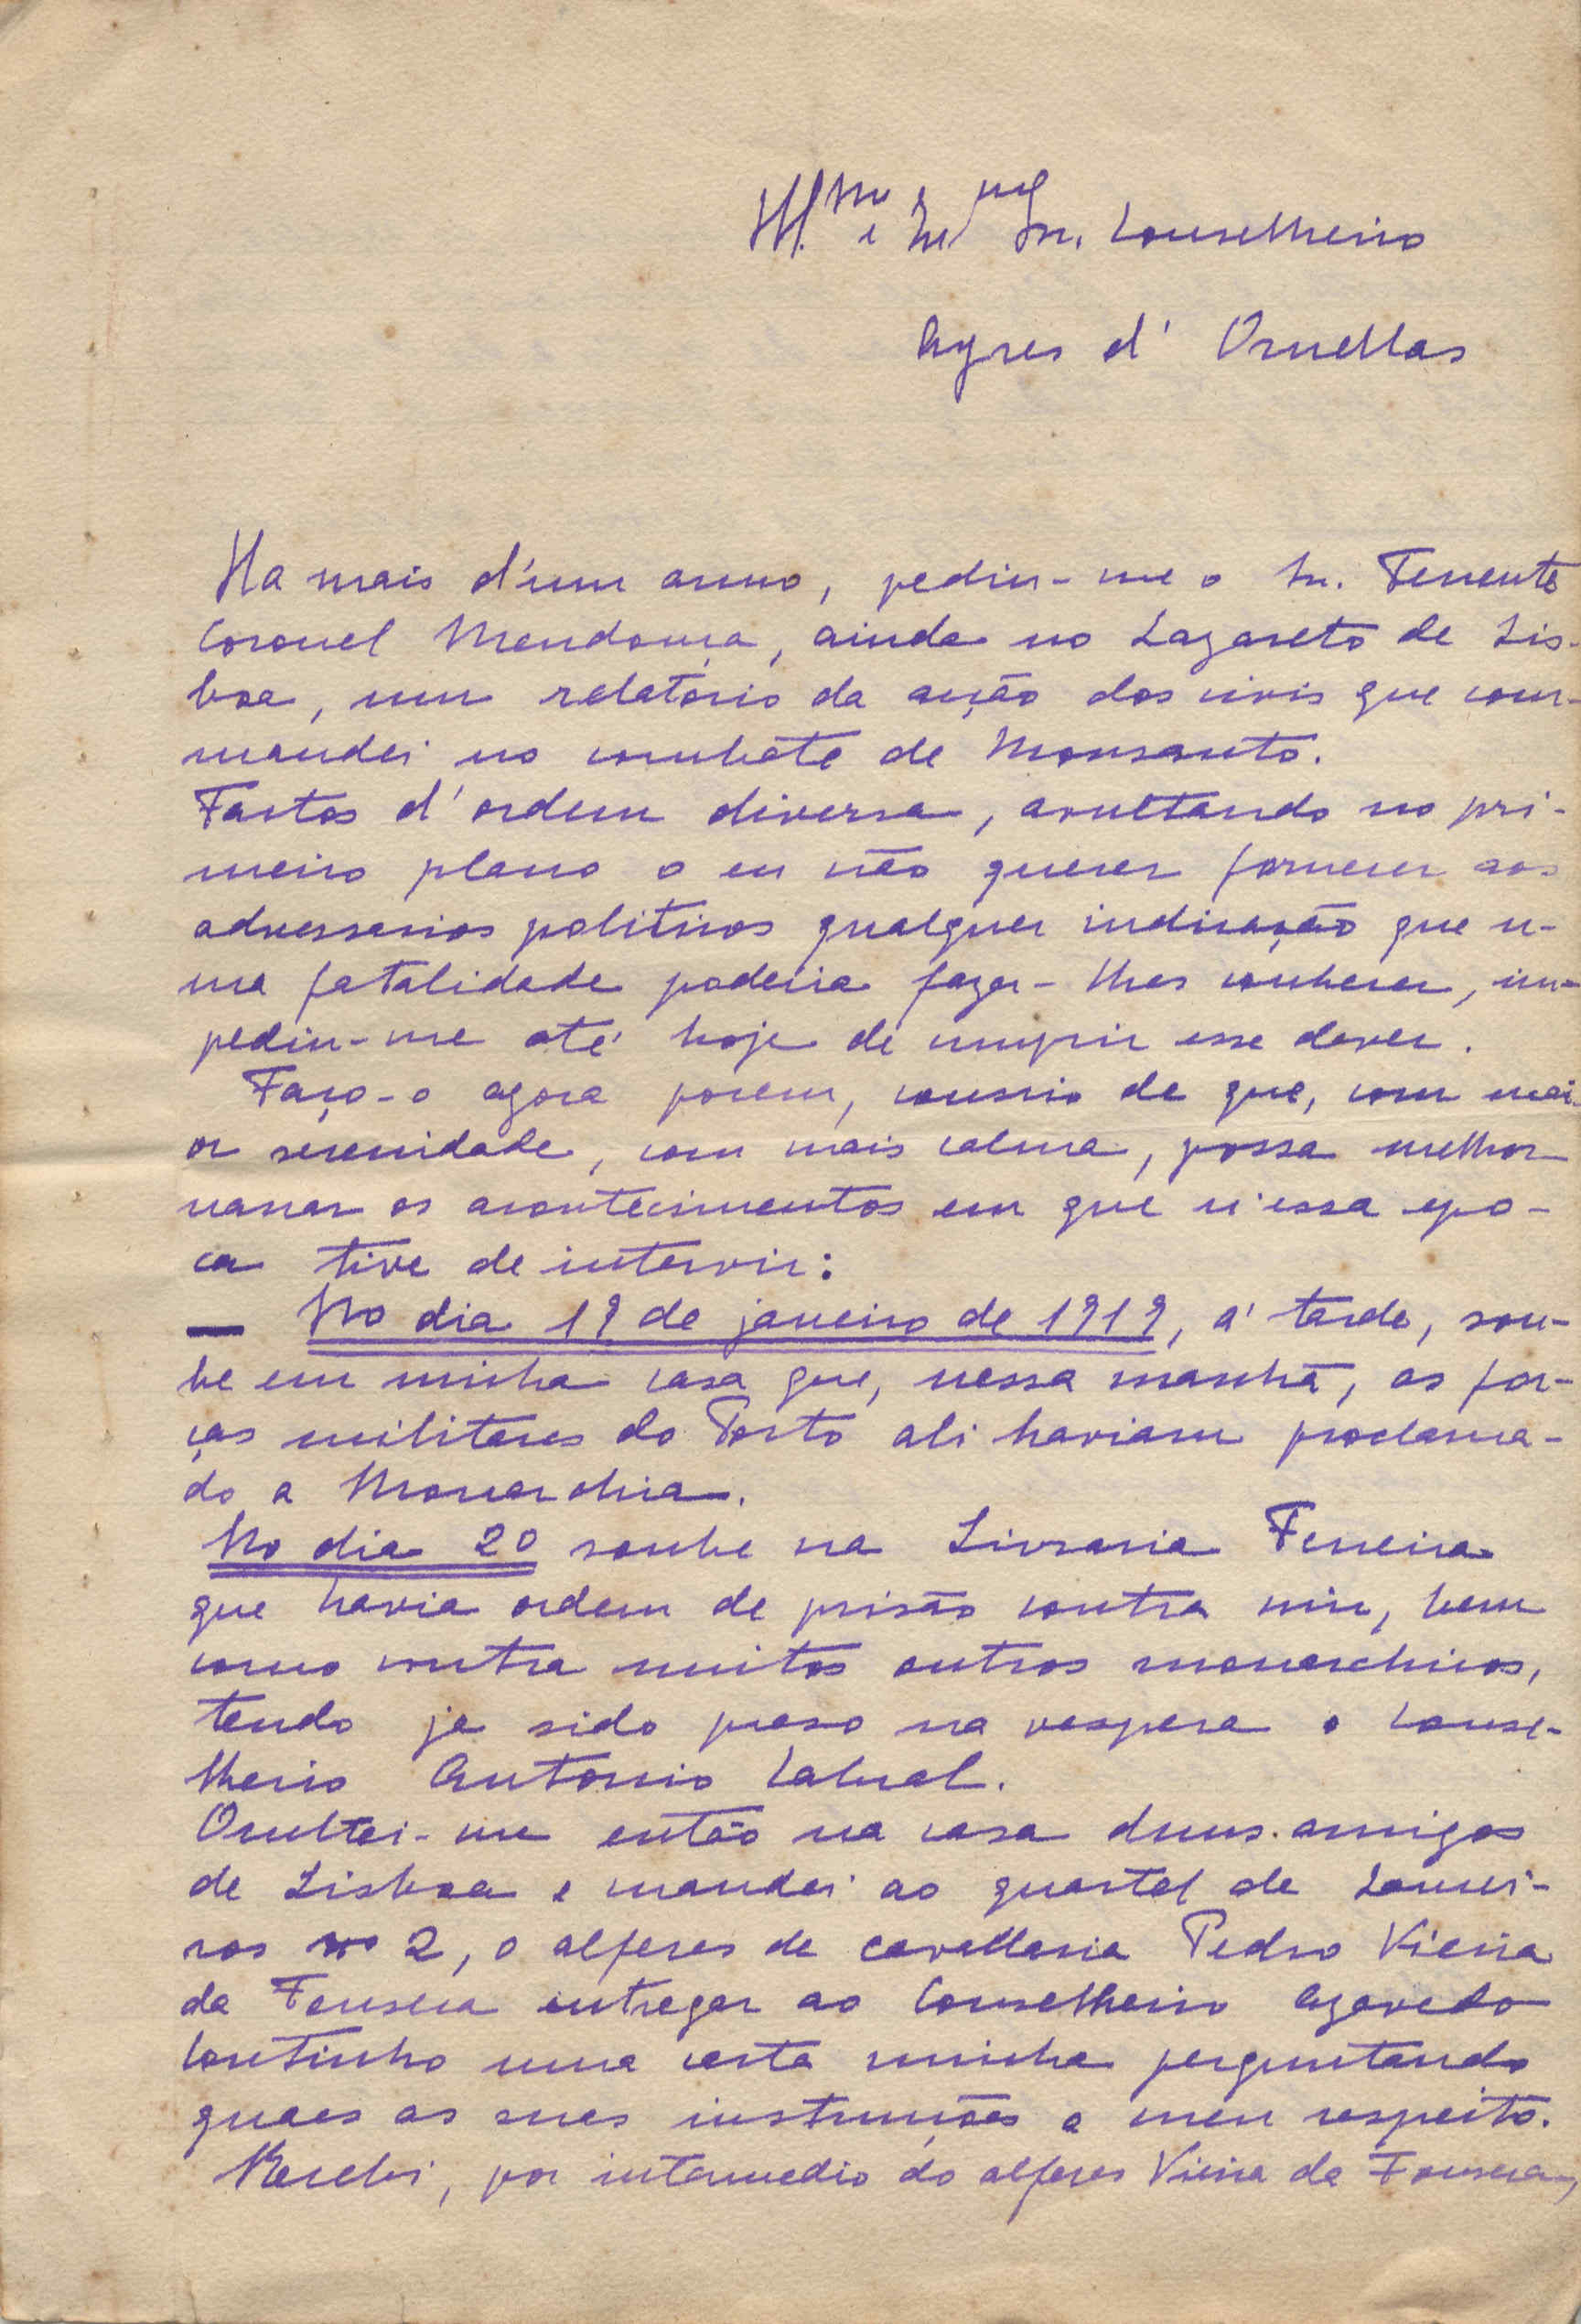 Ill.mo e Ex.mo Sr. Conselheiro
Ayres d'Ornellas
Ha mais d'um anno, pediu-me o Sr. Tenente
Coronel Mendonça, ainda no Lazareto de Lis-
boa, um relatorio da acção dos civis que com-
mandei no combate de Monsanto.
Factos d'ordem diversa, avultando no pri-
meiro plano o eu não querer fornecer aos
adversarios politicos qualquer indicação que u-
ma fatalidade poderia fazer-lhes conhecer, im-
pediu-me até hoje de cumprir esse dever.
Faço-o agora porem, conscio de que, com mai-
or serenidade, com mais calma, possa melhor
narrar os acontecimentos em que n'essa epo-
ca tive de intervir:
— No dia 19 de janeiro de 1919, á tarde, sou-
be em minha casa que, nessa manhã, as for-
ças militares do Porto ali haviam proclama-
do a Monarchia.
No dia 20 soube na Livraria Ferreira
que havia ordem de prisão contra mim, bem
como contra muitos outros monarchicos,
tendo ja sido preso na vespera o Conse-
lheiro Antonio Cabral.
Ocultei-me então na casa duns amigos
de Lisboa e mandei ao quartel de Lancei-
ros nº 2, o alferes de cavallaria Pedro Vieira
da Fonseca entregar ao Conselheiro Azevedo
Coutinho uma carta minha perguntando
quaes as suas instrucções a meu respeito.
Recebi, por intermedio do alferes Vieira da Fonseca,